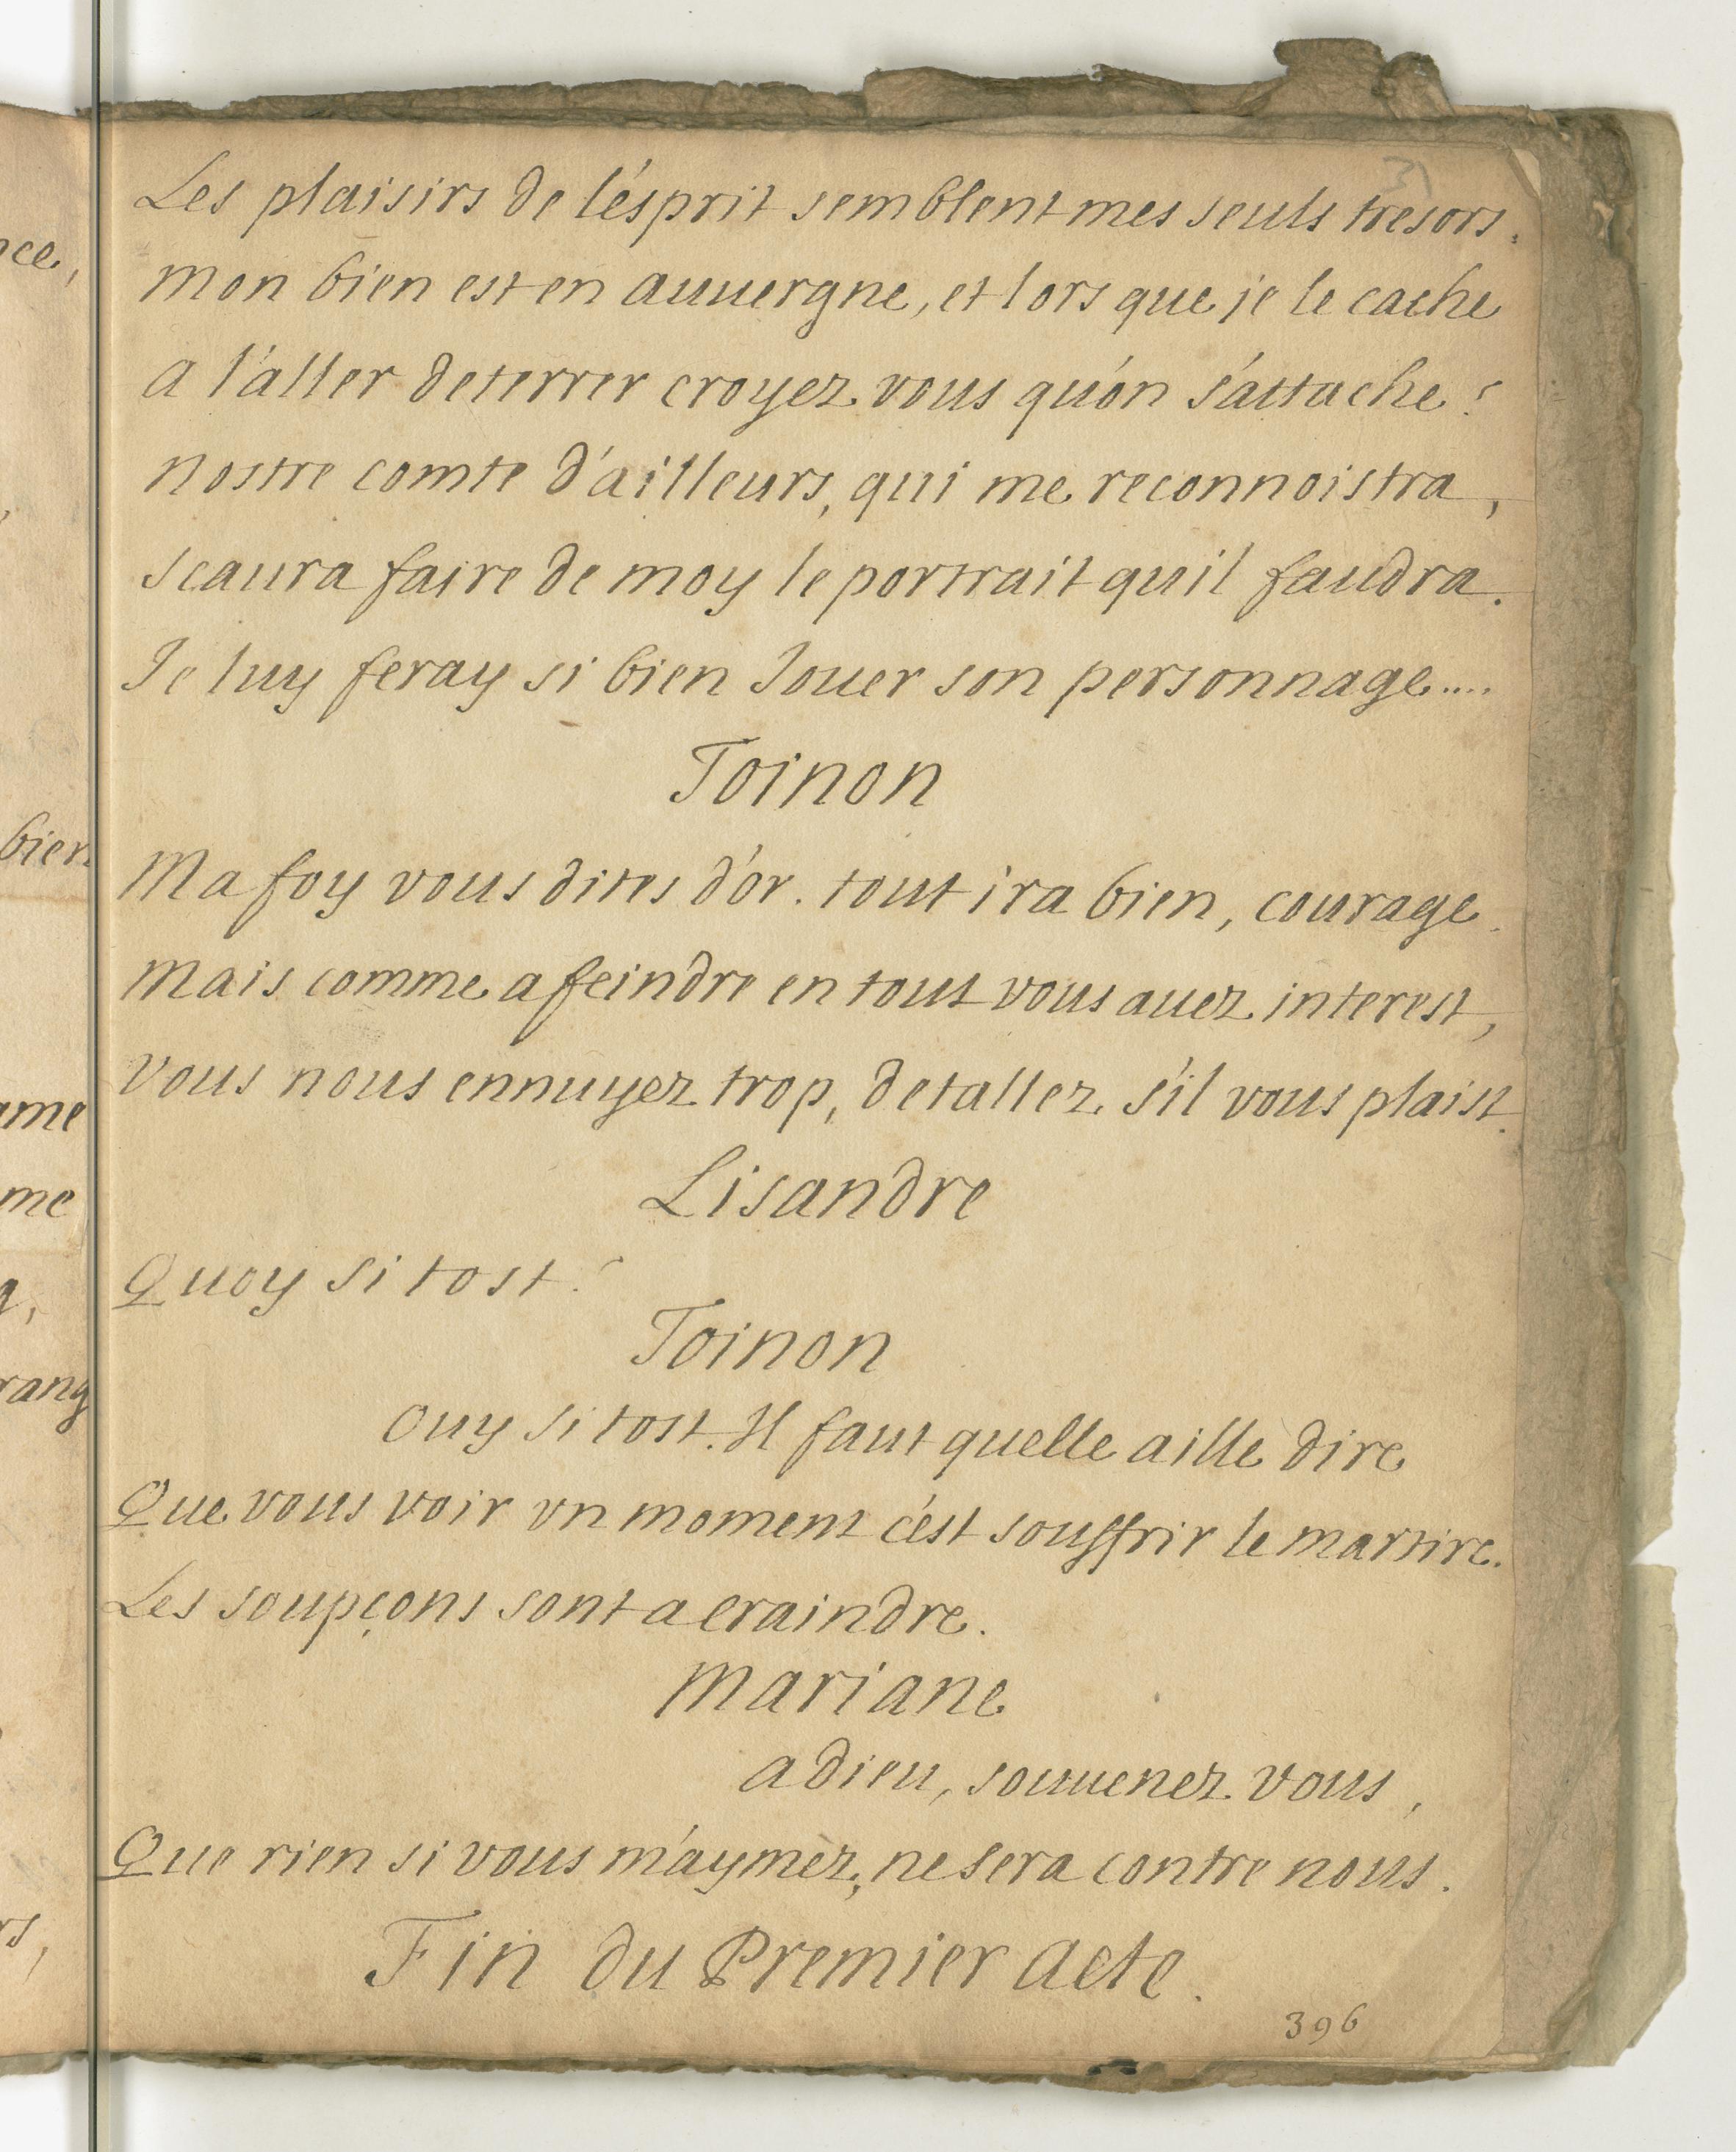 31
Les plaisirs de l'ésprit semblent mes seuls tresors.
mon bien est en auuergne, et lors que je le cache
a l'aller deterrer croyez vous qu'on s'attache ?
nostre comte d'ailleurs, qui me reconnoistra,
scaura faire de moy le portrait quil faudra.
Je luy feray si bien Jouer son personnage....
Toinon
Ma foy vous dites d'or. tout ira bien, courage.
Mais comme a feindre en tout vous auez interest,
vous nous ennuyez trop, detallez s'il vous plaist.
Lisandre
Quoy si tost ?
Toinon
Ouy si tost. Il faut quelle aille dire
Que vous voir vn moment c'est souffrir le martire.
Les soupçons sont a craindre.
Mariane
adieu, souuenez vous,
Que rien si vous m'aymez, ne sera contre nous.
Fin du Premier acte.
396
nce,
bien
ame
me
rang
rs,